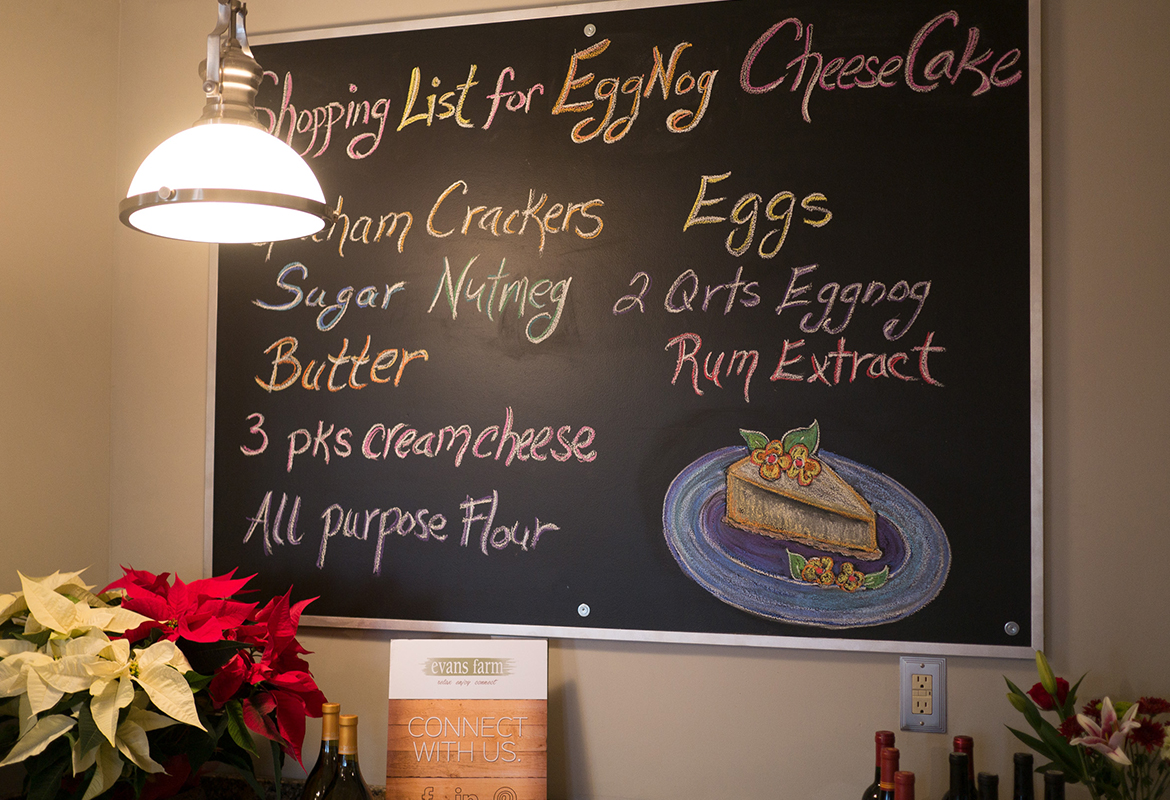 Shopping List for EggNog CheeseCake
Graham Crackers
Sugar Nutmeg
Butter
3 pks creamcheese
All purpose Flour
Eggs
2 Qrts Eggnog
Rum Extract
evans farm
relax enjoy connect
CONNECT
WITH US.